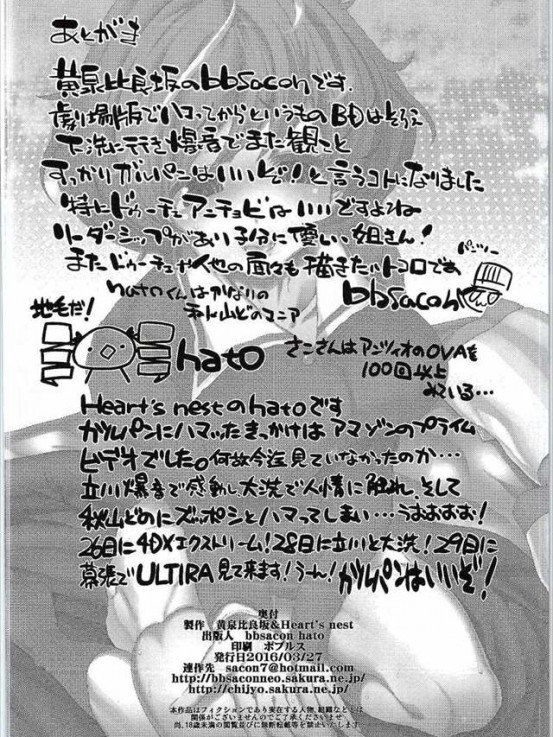 あとがき
黄泉比良坂のbbsaconです.
劇場版でハマってからというものBDはそろえ
大洗に行き爆音でまた観てと
すっかりガルパンはいいぞ！と言うコトになりました
特にドゥーチェアンチョビはいいですよね
リーダーシップがあり子分に優しい姐さん！
またドゥーチェや他の面々も描きたいトコロです
パンツァー
bbsacon
hatoくんはかなりの
秋山どのマニア
地毛だ！
hato
さこさんはアンツィオのOVAを
100回以上
みている…
Heart's nestのhatoです
ガルパンにハマッたきっかけはアマゾンのプライム
ビデオでした。何故今迄見ていなかったのか…
立川爆音で感動し大洗で人情に触れ、そして
秋山どのにズッポシとハマってしまい…うおおおお！
26日に4DXエクストリーム！28日に立川と大洗！29日に
幕張でULTIRA見て来ます！うーん！ガルパンはいいぞ！
奥付
製作　黄泉比良坂&Heart's nest
出版人　bbsacon hato
印刷　ポプルス
発行日2016/03/27
連作先　sacon7@hotmail.com
http://bbsaconneo.sakura.ne.jp/
http://chijyo.sakura.ne.jp/
本作品はフィクションであり実在する人物、組織などとは
関係がございませんのでご了承くださいませ
尚、18歳未満の閲覧並びに無断転載などを禁止いたします